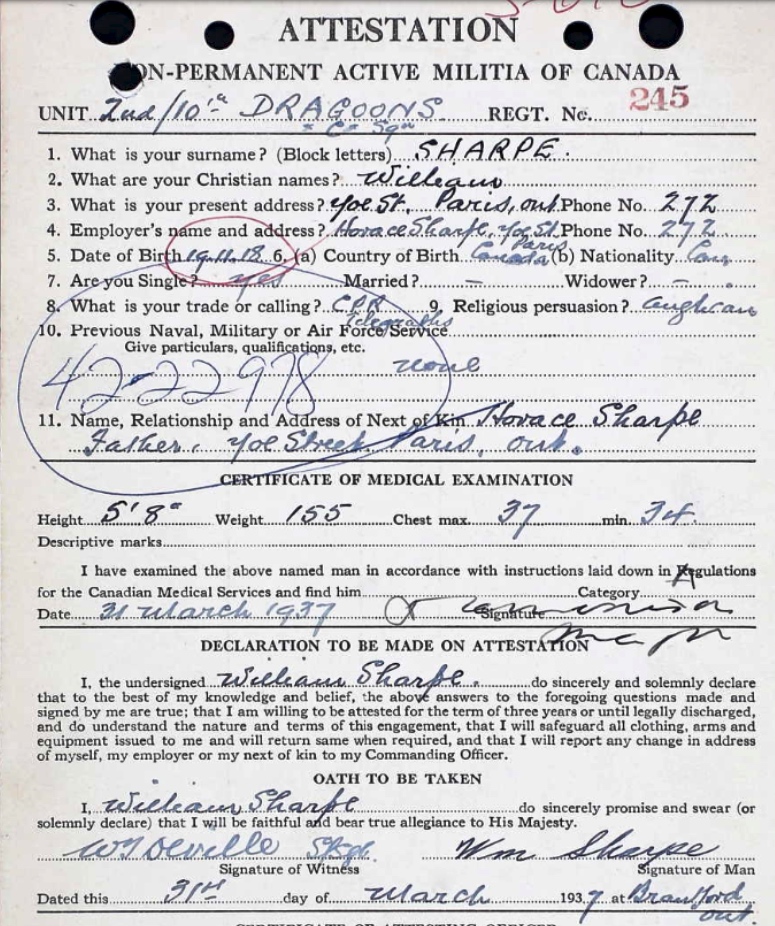 ATTESTATION
ON-PERMANENT ACTIVE MILITIA OF CANADA
UNIT 2nd/10th DRAGOONS REGT. No. 245
"C" Sqn
1. What is your surname? (Block letters) SHARPE.
2. What are your Christian names? William
3. What is your present address? Yoe St., Paris, ont. Phone No. 272
4. Employer's name and address? Horace Sharpe, Yoe St. Paris Phone No. 272
5. Date of Birth 19.11.18 6. (a) Country of Birth Canada (b) Nationality Can
7. Are you Single? yes Married? – Widower? –
8. What is your trade or calling? CPR Telegraphs 9. Religious persuasion? Anglican
10. Previous Naval, Military or Air Force Service
Give particulars, qualifications, etc.
none
42-22978
11. Name, Relationship and Address of Next of Kin Horace Sharpe
Father, Yoe Street Paris, ont.
CERTIFICATE OF MEDICAL EXAMINATION
Height 5'8" Weight 155 Chest max. 37 min. 34.
Descriptive marks
I have examined the above named man in accordance with instructions laid down in Regulations
for the Canadian Medical Services and find him Category A
Date 31 March 1937 Signature
DECLARATION TO BE MADE ON ATTESTATION
I, the undersigned William Sharpe. do sincerely and solemnly declare
that to the best of my knowledge and belief, the above answers to the foregoing questions made and
signed by me are true; that I am willing to be attested for the term of three years or until legally discharged,
and do understand the nature and terms of this engagement, that I will safeguard all clothing, arms and
equipment issued to me and will return same when required, and that I will report any change in address
of myself, my employer or my next of kin to my Commanding Officer.
OATH TO BE TAKEN
I, William Sharpe do sincerely promise and swear (or
solemnly declare) that I will be faithful and bear true allegiance to His Majesty.
Wm Sharpe
Signature of Witness Signature of Man
Dated this 31st day of March 1937 at Brantford
ont.